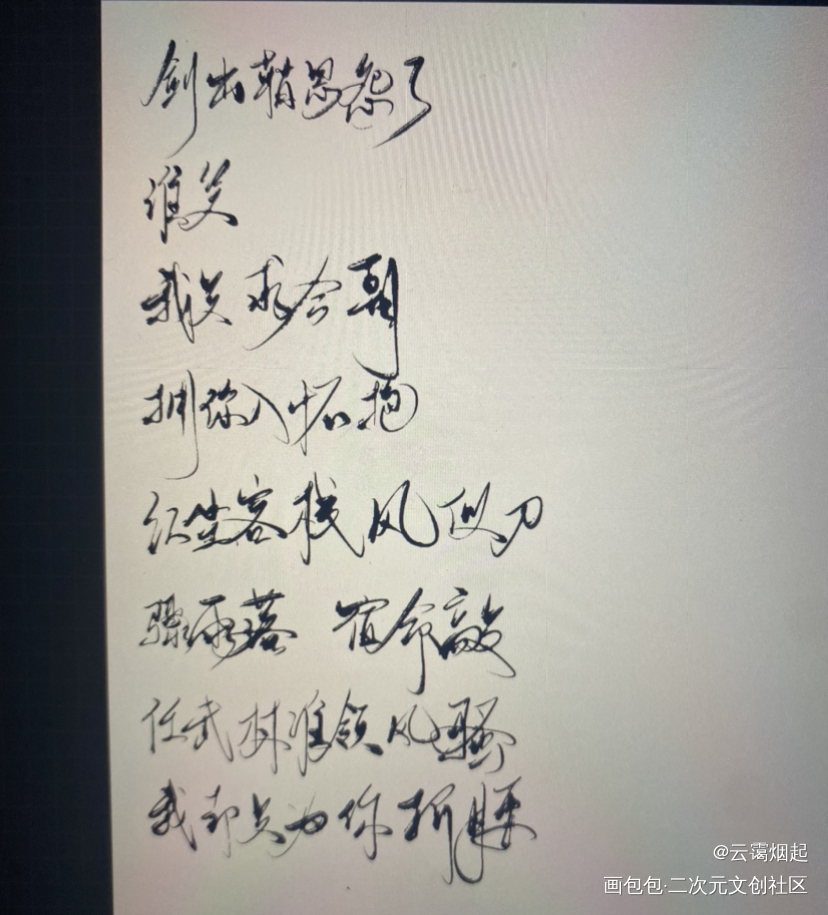 剑出鞘恩怨了
谁笑
我只求今朝
拥你入怀抱
红尘客栈风似刀
骤雨落 宿命敲
任武林谁领风骚
我却只为你折腰
@云霭烟起
画包包·二次元文创社区